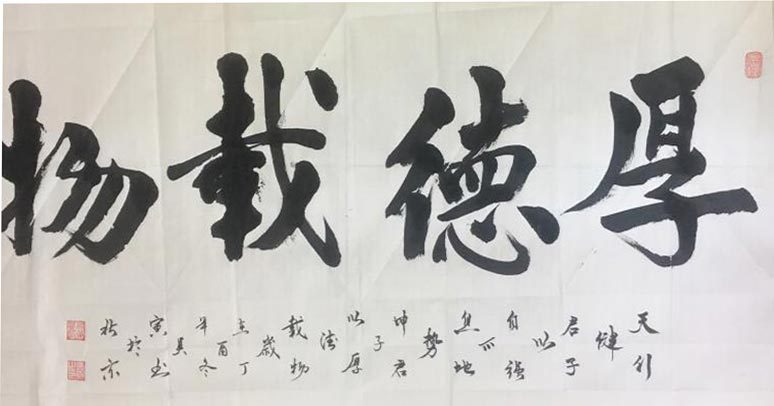 厚德載物
天行
健
君子
以
自強
不
息地
勢
坤君
子
以厚
德
載物
歲
在丁
酉
年冬
寅书
於
京